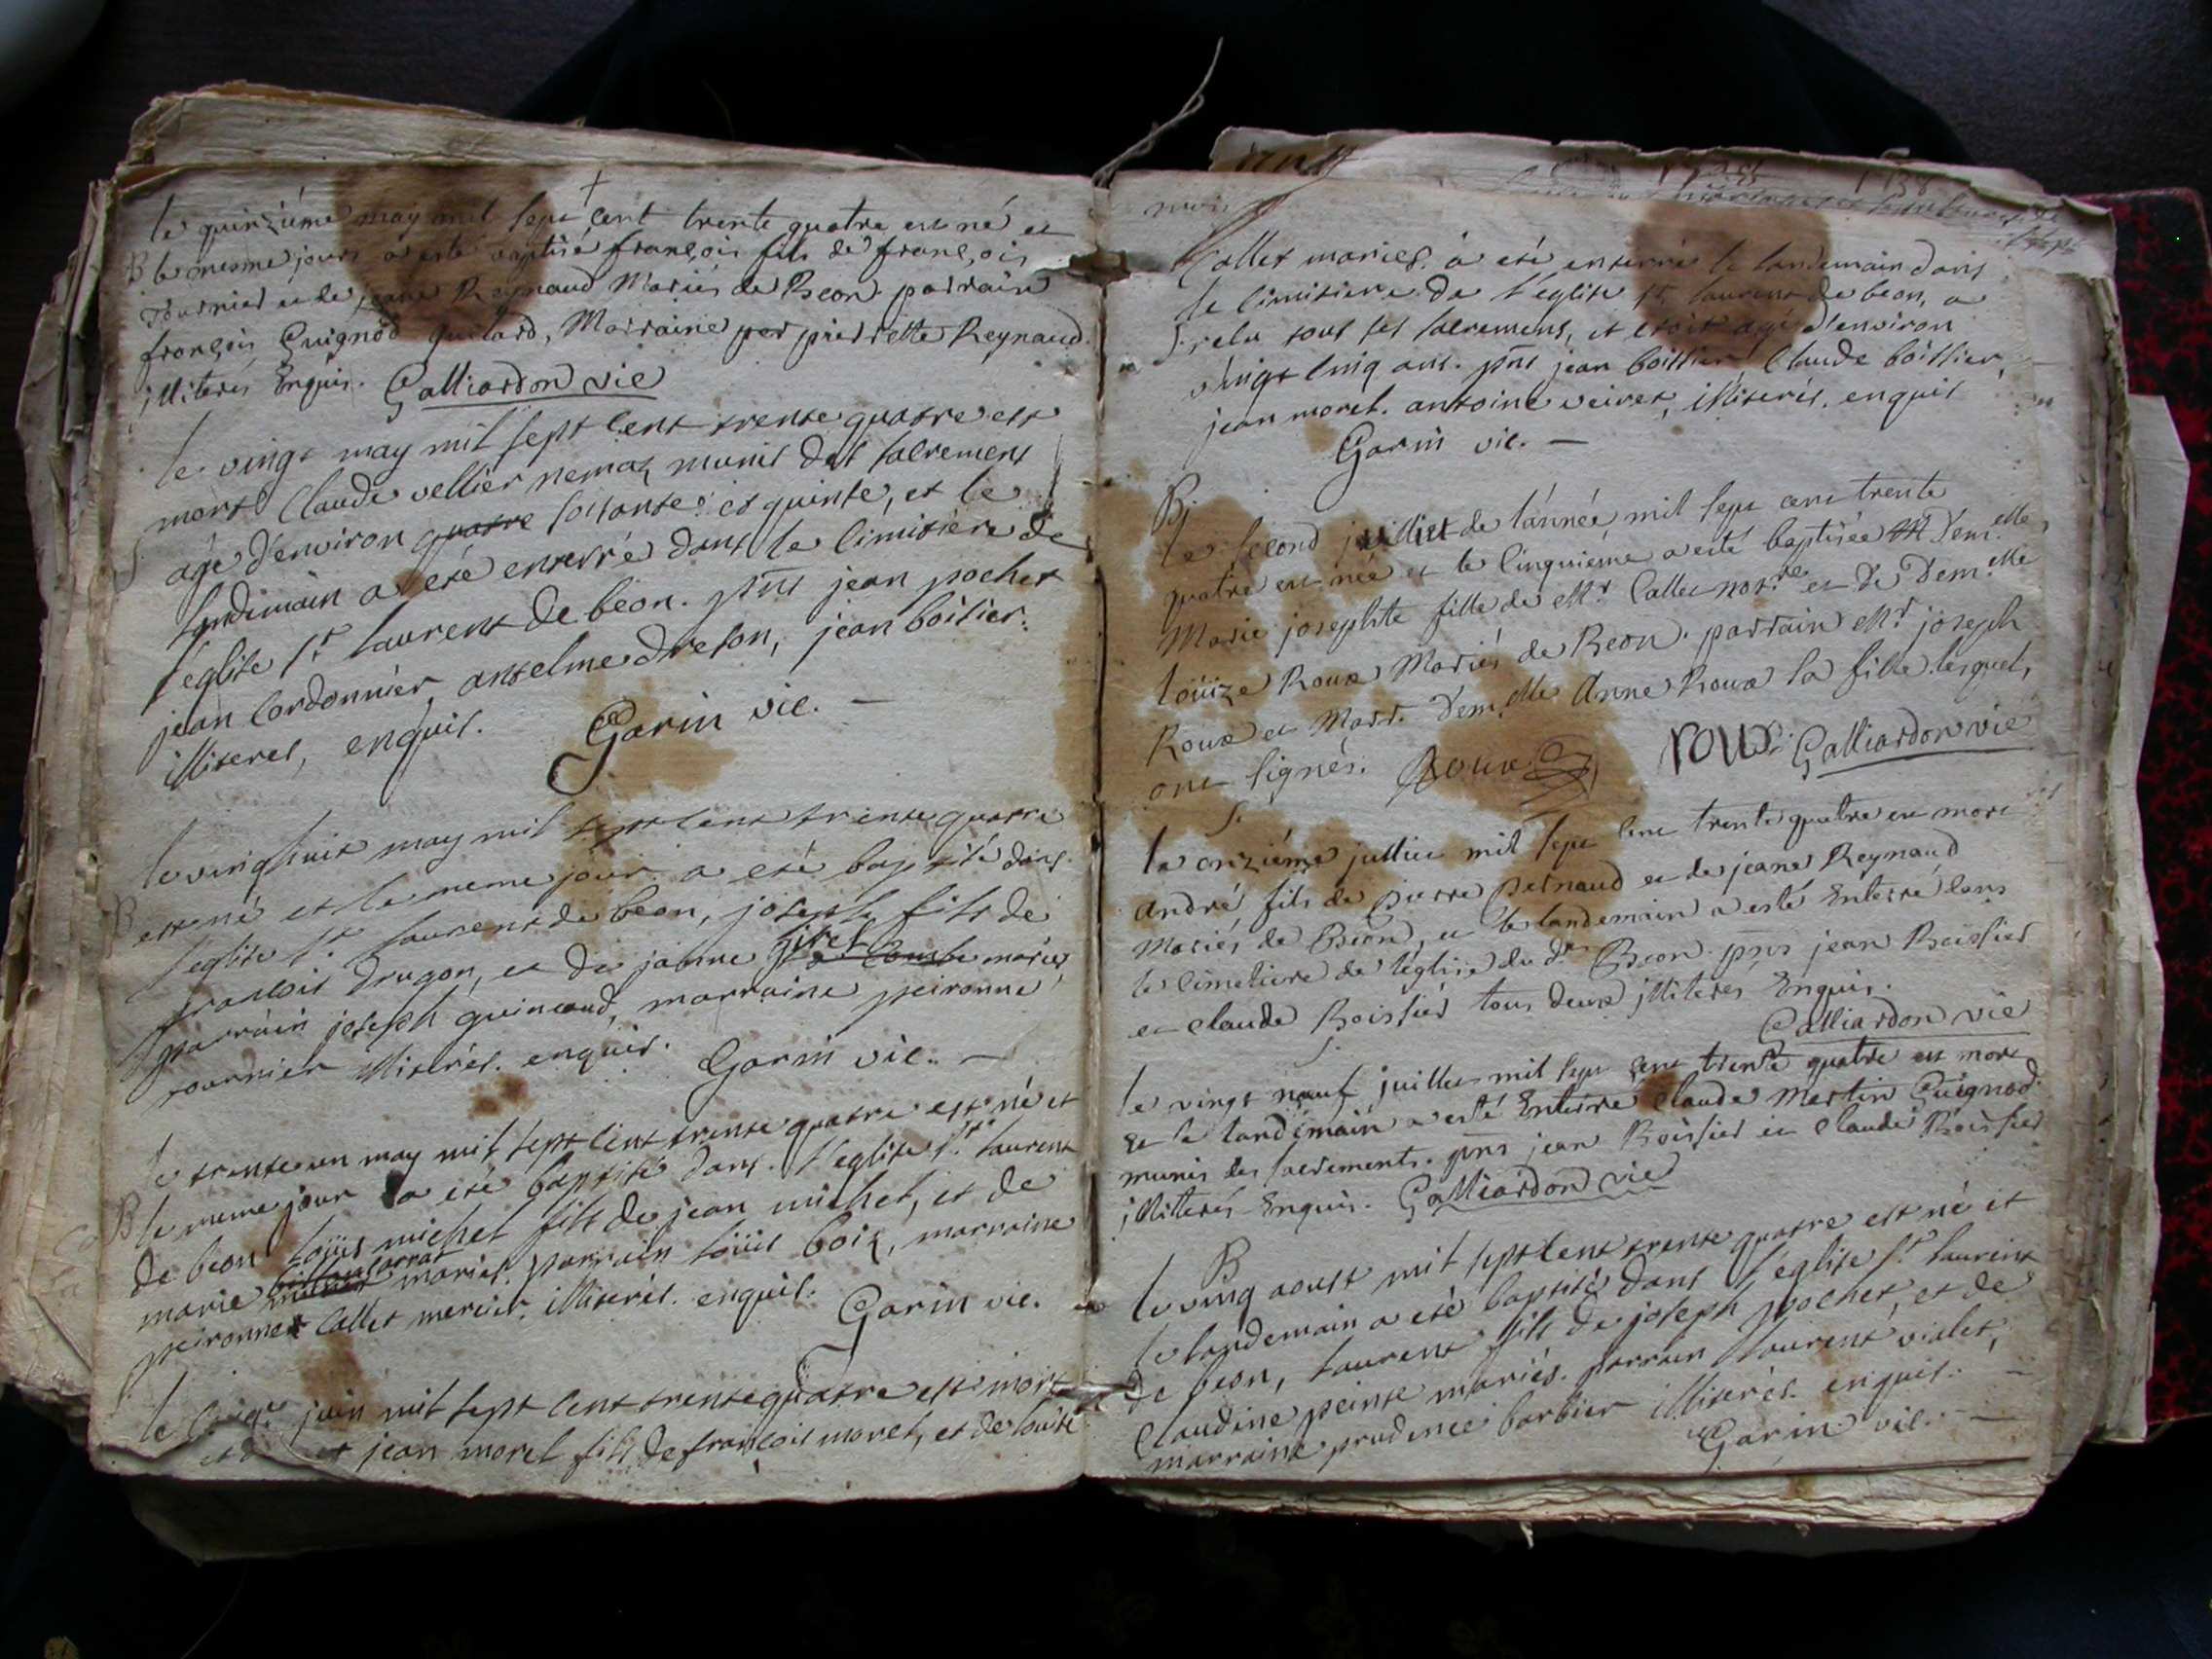 le quinziéme may mil sept cent trente quatre est né et
B le mesme jours a esté baptisé françois fils de françois
tournier et de jeane Reynaud Mariés de Beon. parrain
françois Guignod guilard, Marraine par pierrette Reynaud
illiterés Enquis. Galliardon vic
le vingt may mil sept cent trente quatre est
mort Claude vellier nemoz munis des sacrement
S agé d'environ quatre soixante et quinse, et le
landemain a eté enterré dans le cimitière de
l'eglise St. laurent de beon. pñs jean pochet
jean Cordonnier, anselme dreson, jean boisier.
illiteres, enquis. Garin vic. —
le vingthuit may mil sept cent trente quatre
B est né et le meme jour a eté baptisé dans
l'eglise St. laurent de beon, joseph fils de
francois dragon, et de janne giret Combe mariés
parrain joseph guinand, marraine peironne
tournier illiterés. enquis. Garin vic. —
le trente un may mil sept cent trente quatre est né et
B le meme jour a eté baptisé dans l'eglise St. laurent
de beon loüis michet fils de jean michet, et de
marie mariés. parrain loüis boiz, marraine
peironne Callet mercier. illiterés. enquis. Garin vic.
le juin mil sept cent trente quatre est mort
jean morel fils de françois morel, et de loüise
Callet mariés. a eté enterré le landemain dans
le cimitiere de l'eglise St. laurent de beon, a
S recu tous ses sacremens, et etoit agé d'environ
vingt cinq ans. pñs jean boissier, Claude boissier,
jean morel. antoine veiret, illiterés. enquis
Garin vic. —
B
le second juilliet de l'année mil sept cent trente
quatre est née et le cinquiéme a esté baptisée Demelle
Marie josephte fille de Mr Callet notre et de Demelle
loüize Roux Mariés de Beon. parrain Mr joseph
Roux et Marr. Demelle Anne Roux sa fille lesquels
ont signés. Roux roux Galliardon vic
S.
le onziéme jullier mil sept cent trente quatre est mort
André, fils de pierre pernaud et de jeane Reynaud
Mariés de Beon, et le landemain a esté Enterré dans
le cimetiere de l'église du dt Beon. pñs jean Boissier
et claude Boissier tous deux illiterés Enquis.
Galliardon vic
S.
le vingt neuf juillet mil sept cent trente quatre est mort
et le landémain a esté Enterré Claude Martin Guignod
munis des sacrements. pñs jean Boissier et Claude Boissier
illiterés Enquis. Galliardon vic
B
le vingt aoust mil sept cent trente quatre est né et
le landemain a eté baptisé dans l'église St. laurent
de beon, laurent fils de joseph pochet, et de
Claudine peinte mariés. parrain laurent violet,
marraine prudence barbier illiterés. enquis. —
Garin vic. —